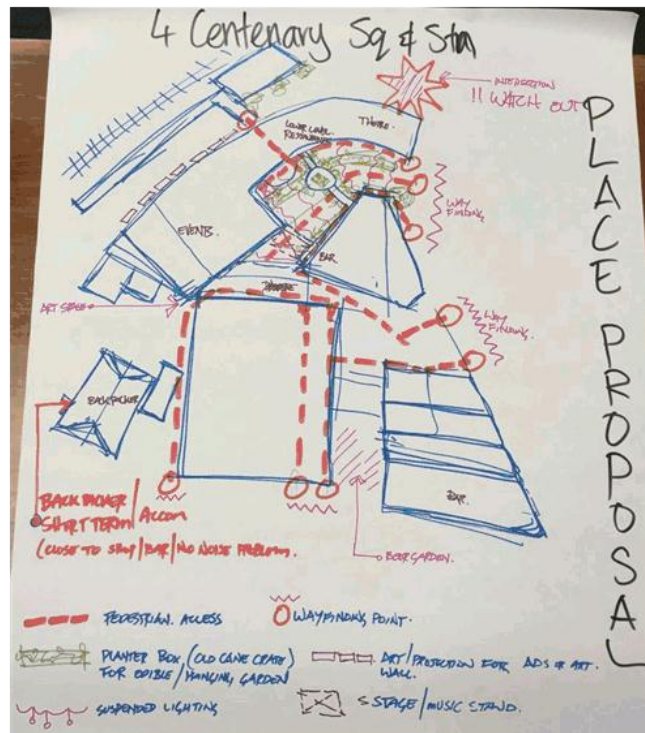 4 Centenary Sq & Stn
INTERSECTION
!! WATCH OUT
PLACE PROPOSAL
THEATRE.
LOWER LEVEL
RESTAURANT
WAY
FINDING
EVENTS.
BAR
THEATRE
ART SPACE
WAY
FINDING.
BACKPACKER
BACKPACKER/
SHORT TERM/ACCOM
(CLOSE TO SHOP/BAR/NO NOISE PROBLEM.
EXP.
BEER GARDEN.
PEDESTRIAN. ACCESS
WAYFINDING POINT.
PLANTER BOX (OLD CANE CRATE)
FOR EDIBLE/HANGING GARDEN
ART/PROJECTION FOR ADS & ART.
WALL.
SUSPENDED LIGHTING
STAGE/MUSIC STAND.